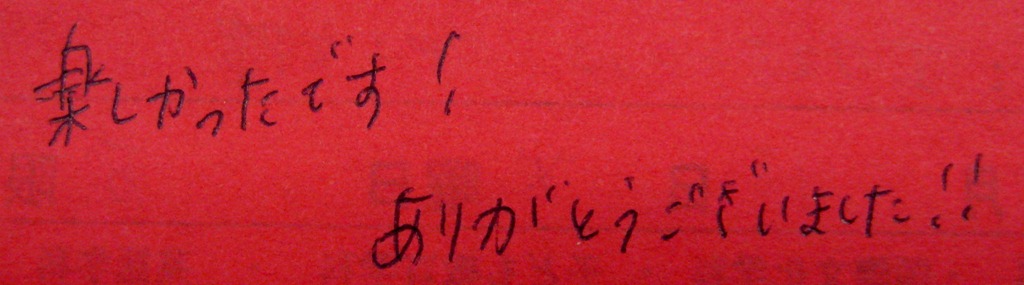 楽しかったです!
ありがとうございました!!